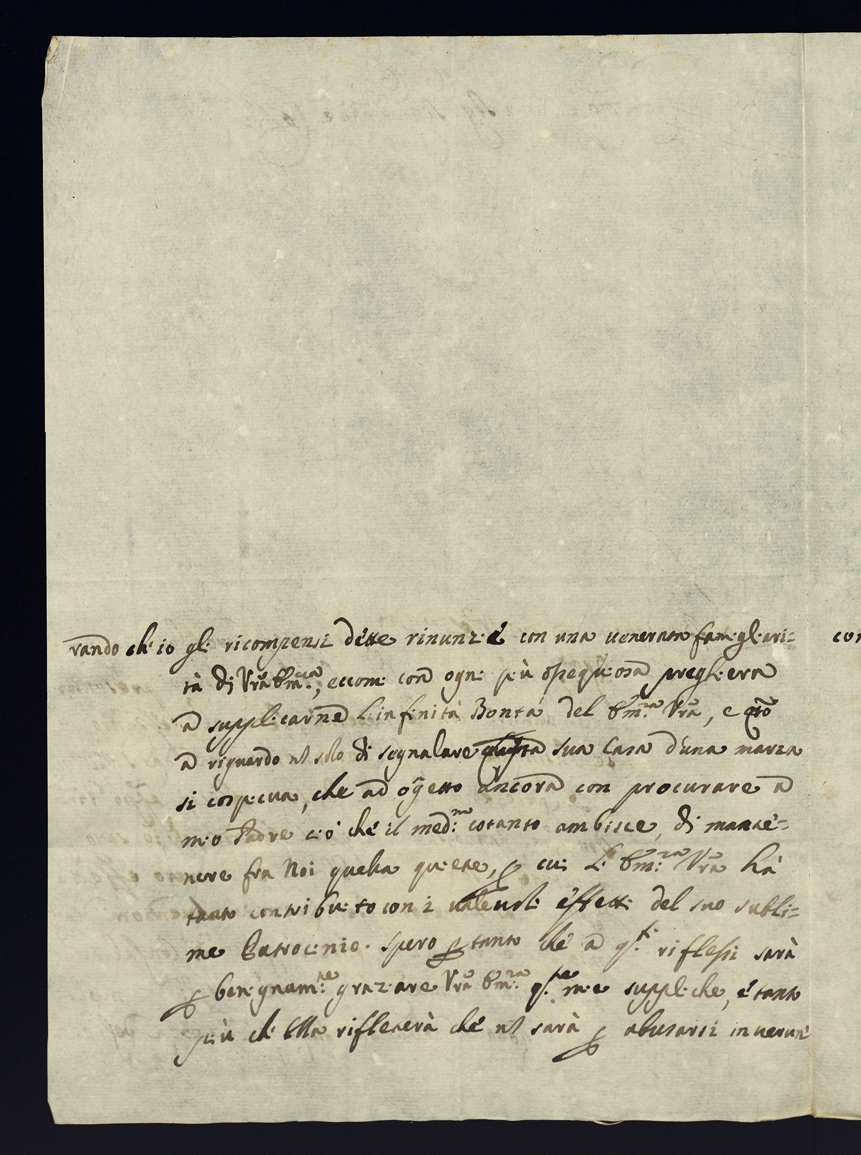 rando che io gli ricompensi dette rinunzie con una venerata famigliari=
tà di Vrã Em:za, eccomi con ogni più ossequiosa preghiera
a supplicarne L'infinità Bontà del Em:za Vrã, e ciò
a riguardo nõ solo di segnalare questa sua Casa d'una marza
si cospicua, che ad oggetto ancora con procurare a
mio Padre ciò che il med:mo cotanto ambisce, di mante=
nere fra Noi quella quiete, p cui L' Em:za Vrã hà
tanto contribuito con i valevoli effetti del suo subli=
me Patrocinio. Spero p tanto che a q:ti riflessi sarà
p benignam:te graziare Vrã Em:za q:te mie suppliche, è tanto
più ch'Ella rifleterà che nõ sarà p abusarsi in verun
con